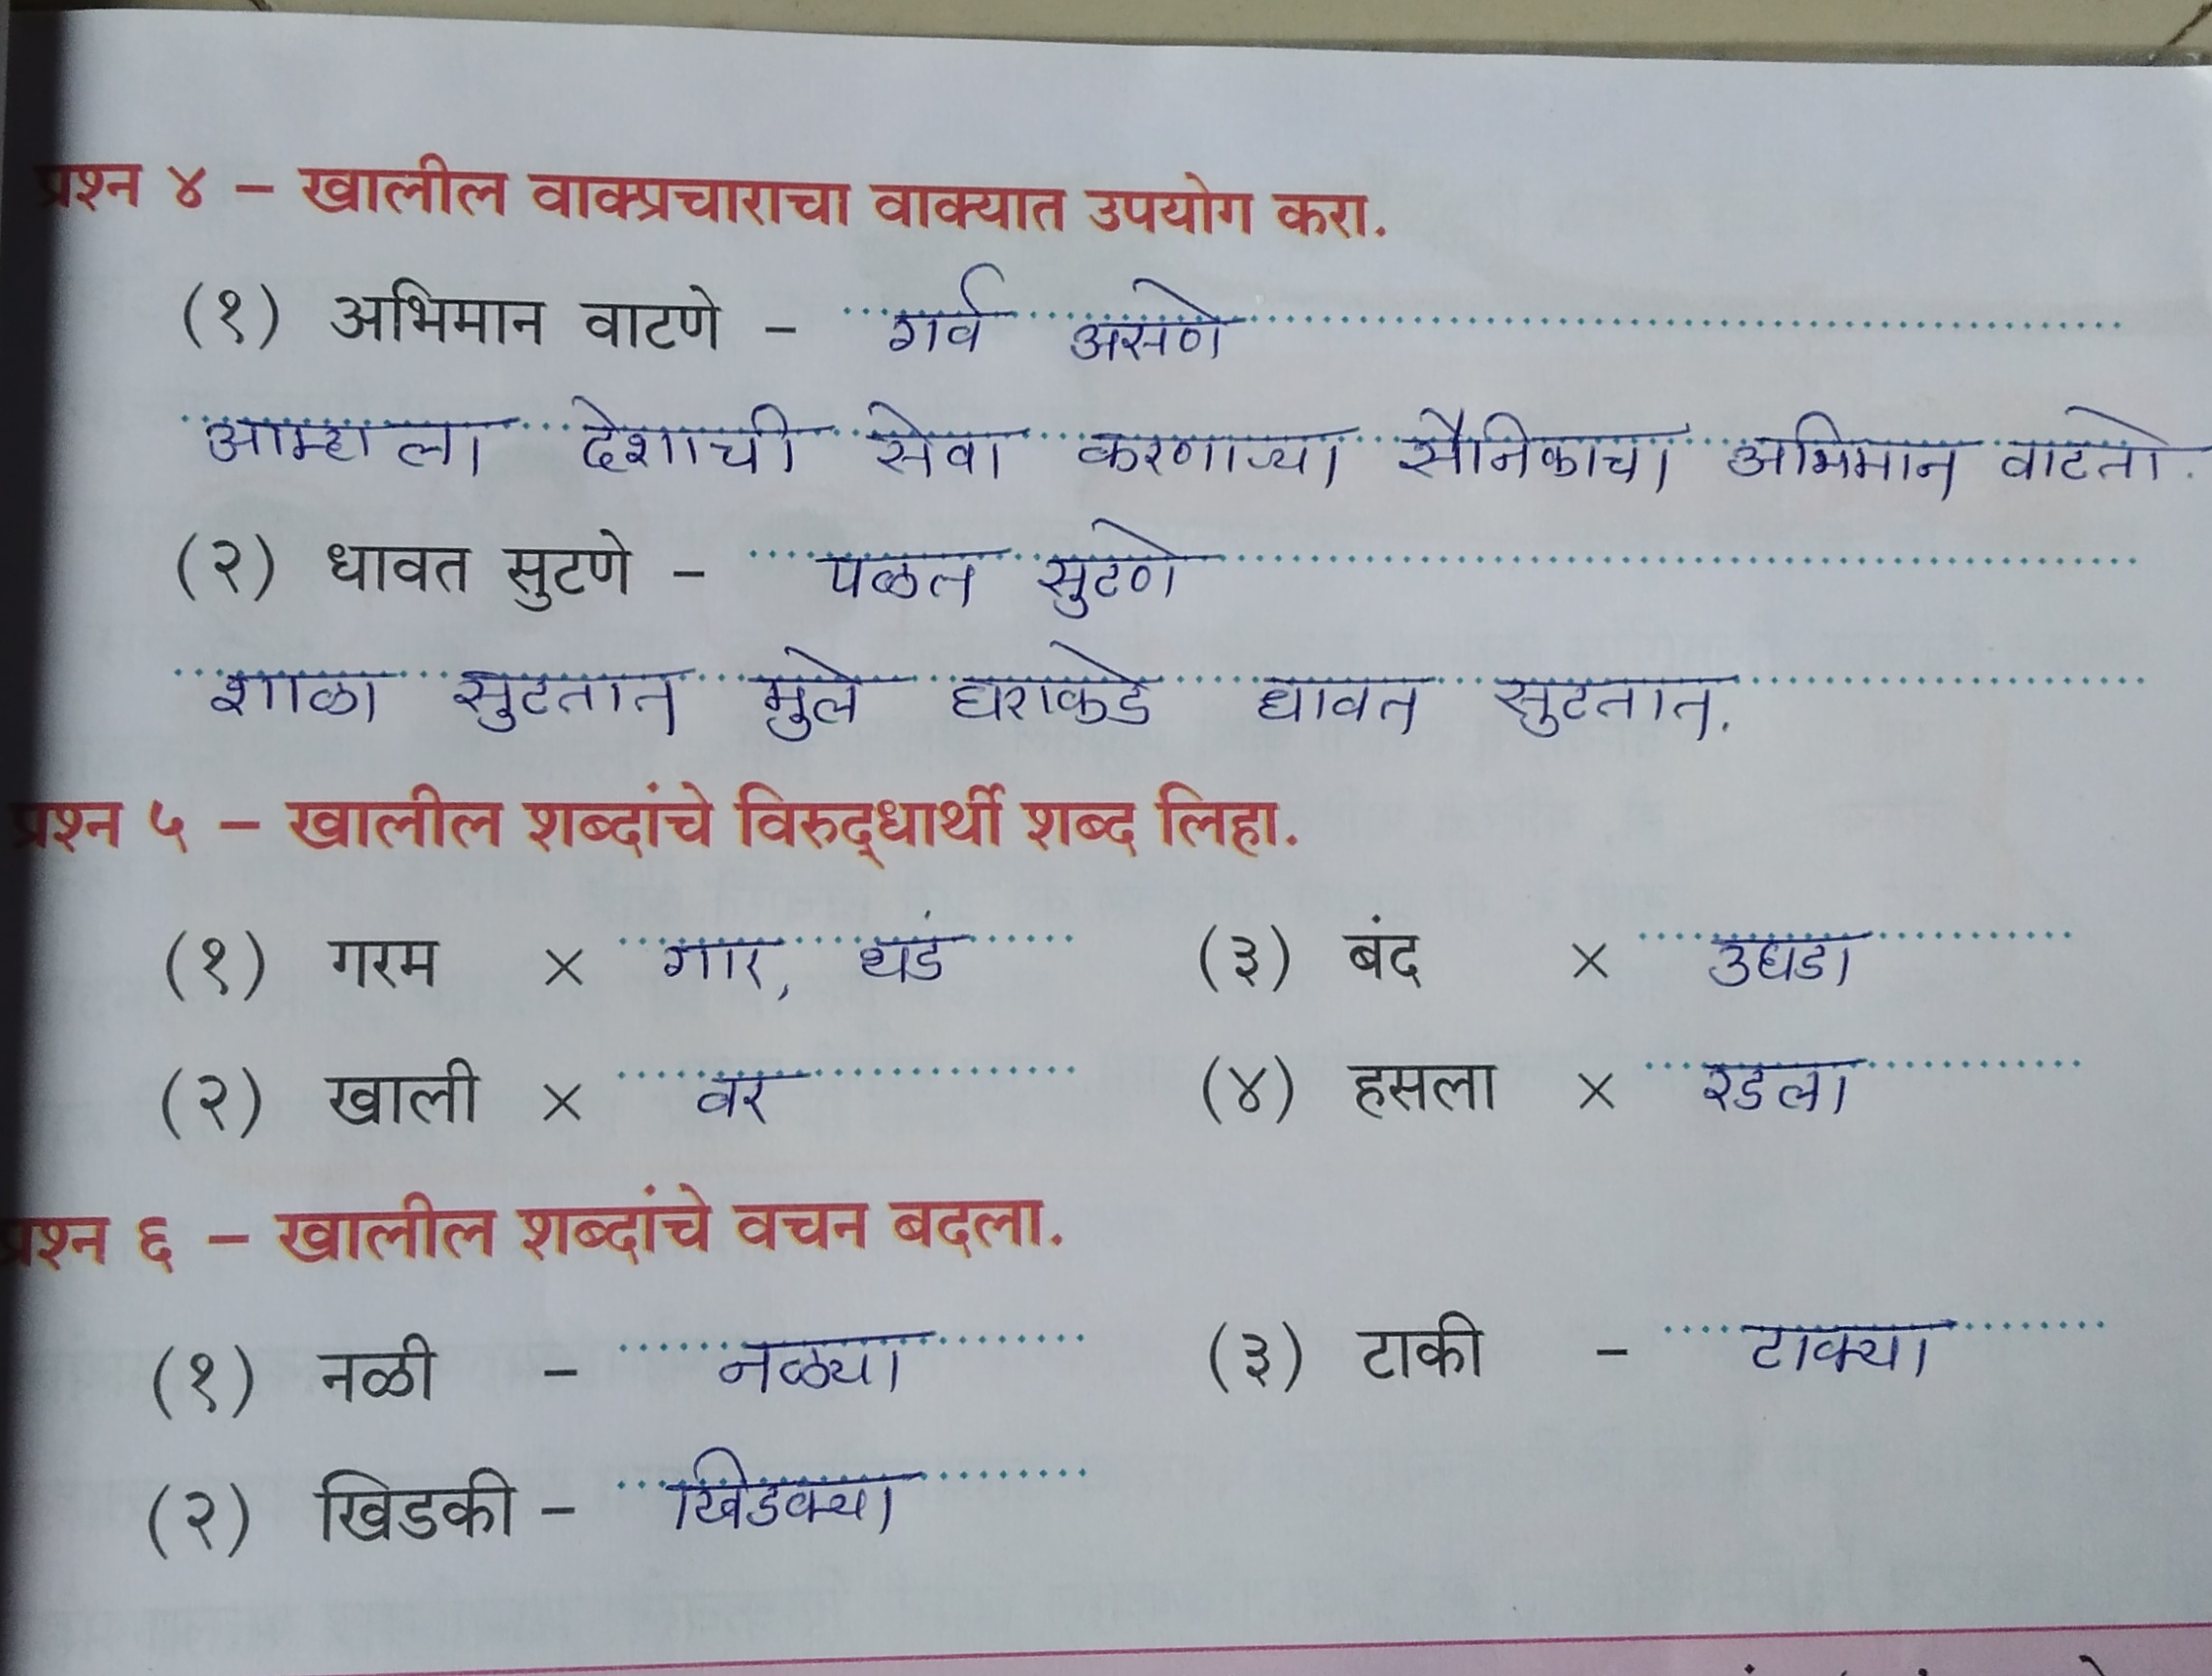 प्रश्न ४ – खालील वाक्प्रचाराचा वाक्यात उपयोग करा.
(१) अभिमान वाटणे – गर्व असणे
आम्हाला देशाची सेवा करणाऱ्या सैनिकाचा अभिमान वाटतो.
(२) धावत सुटणे – पळत सुटणे
शाळा सुटतात मुले घराकडे धावत सुटतात.
प्रश्न ५ – खालील शब्दांचे विरुद्धार्थी शब्द लिहा.
(१) गरम × गार, थंड (३) बंद × उघडा
(२) खाली × वर (४) हसला × रडला
प्रश्न ६ – खालील शब्दांचे वचन बदला.
(१) नळी – नळ्या (३) टाकी – टाक्या
(२) खिडकी – खिडक्या